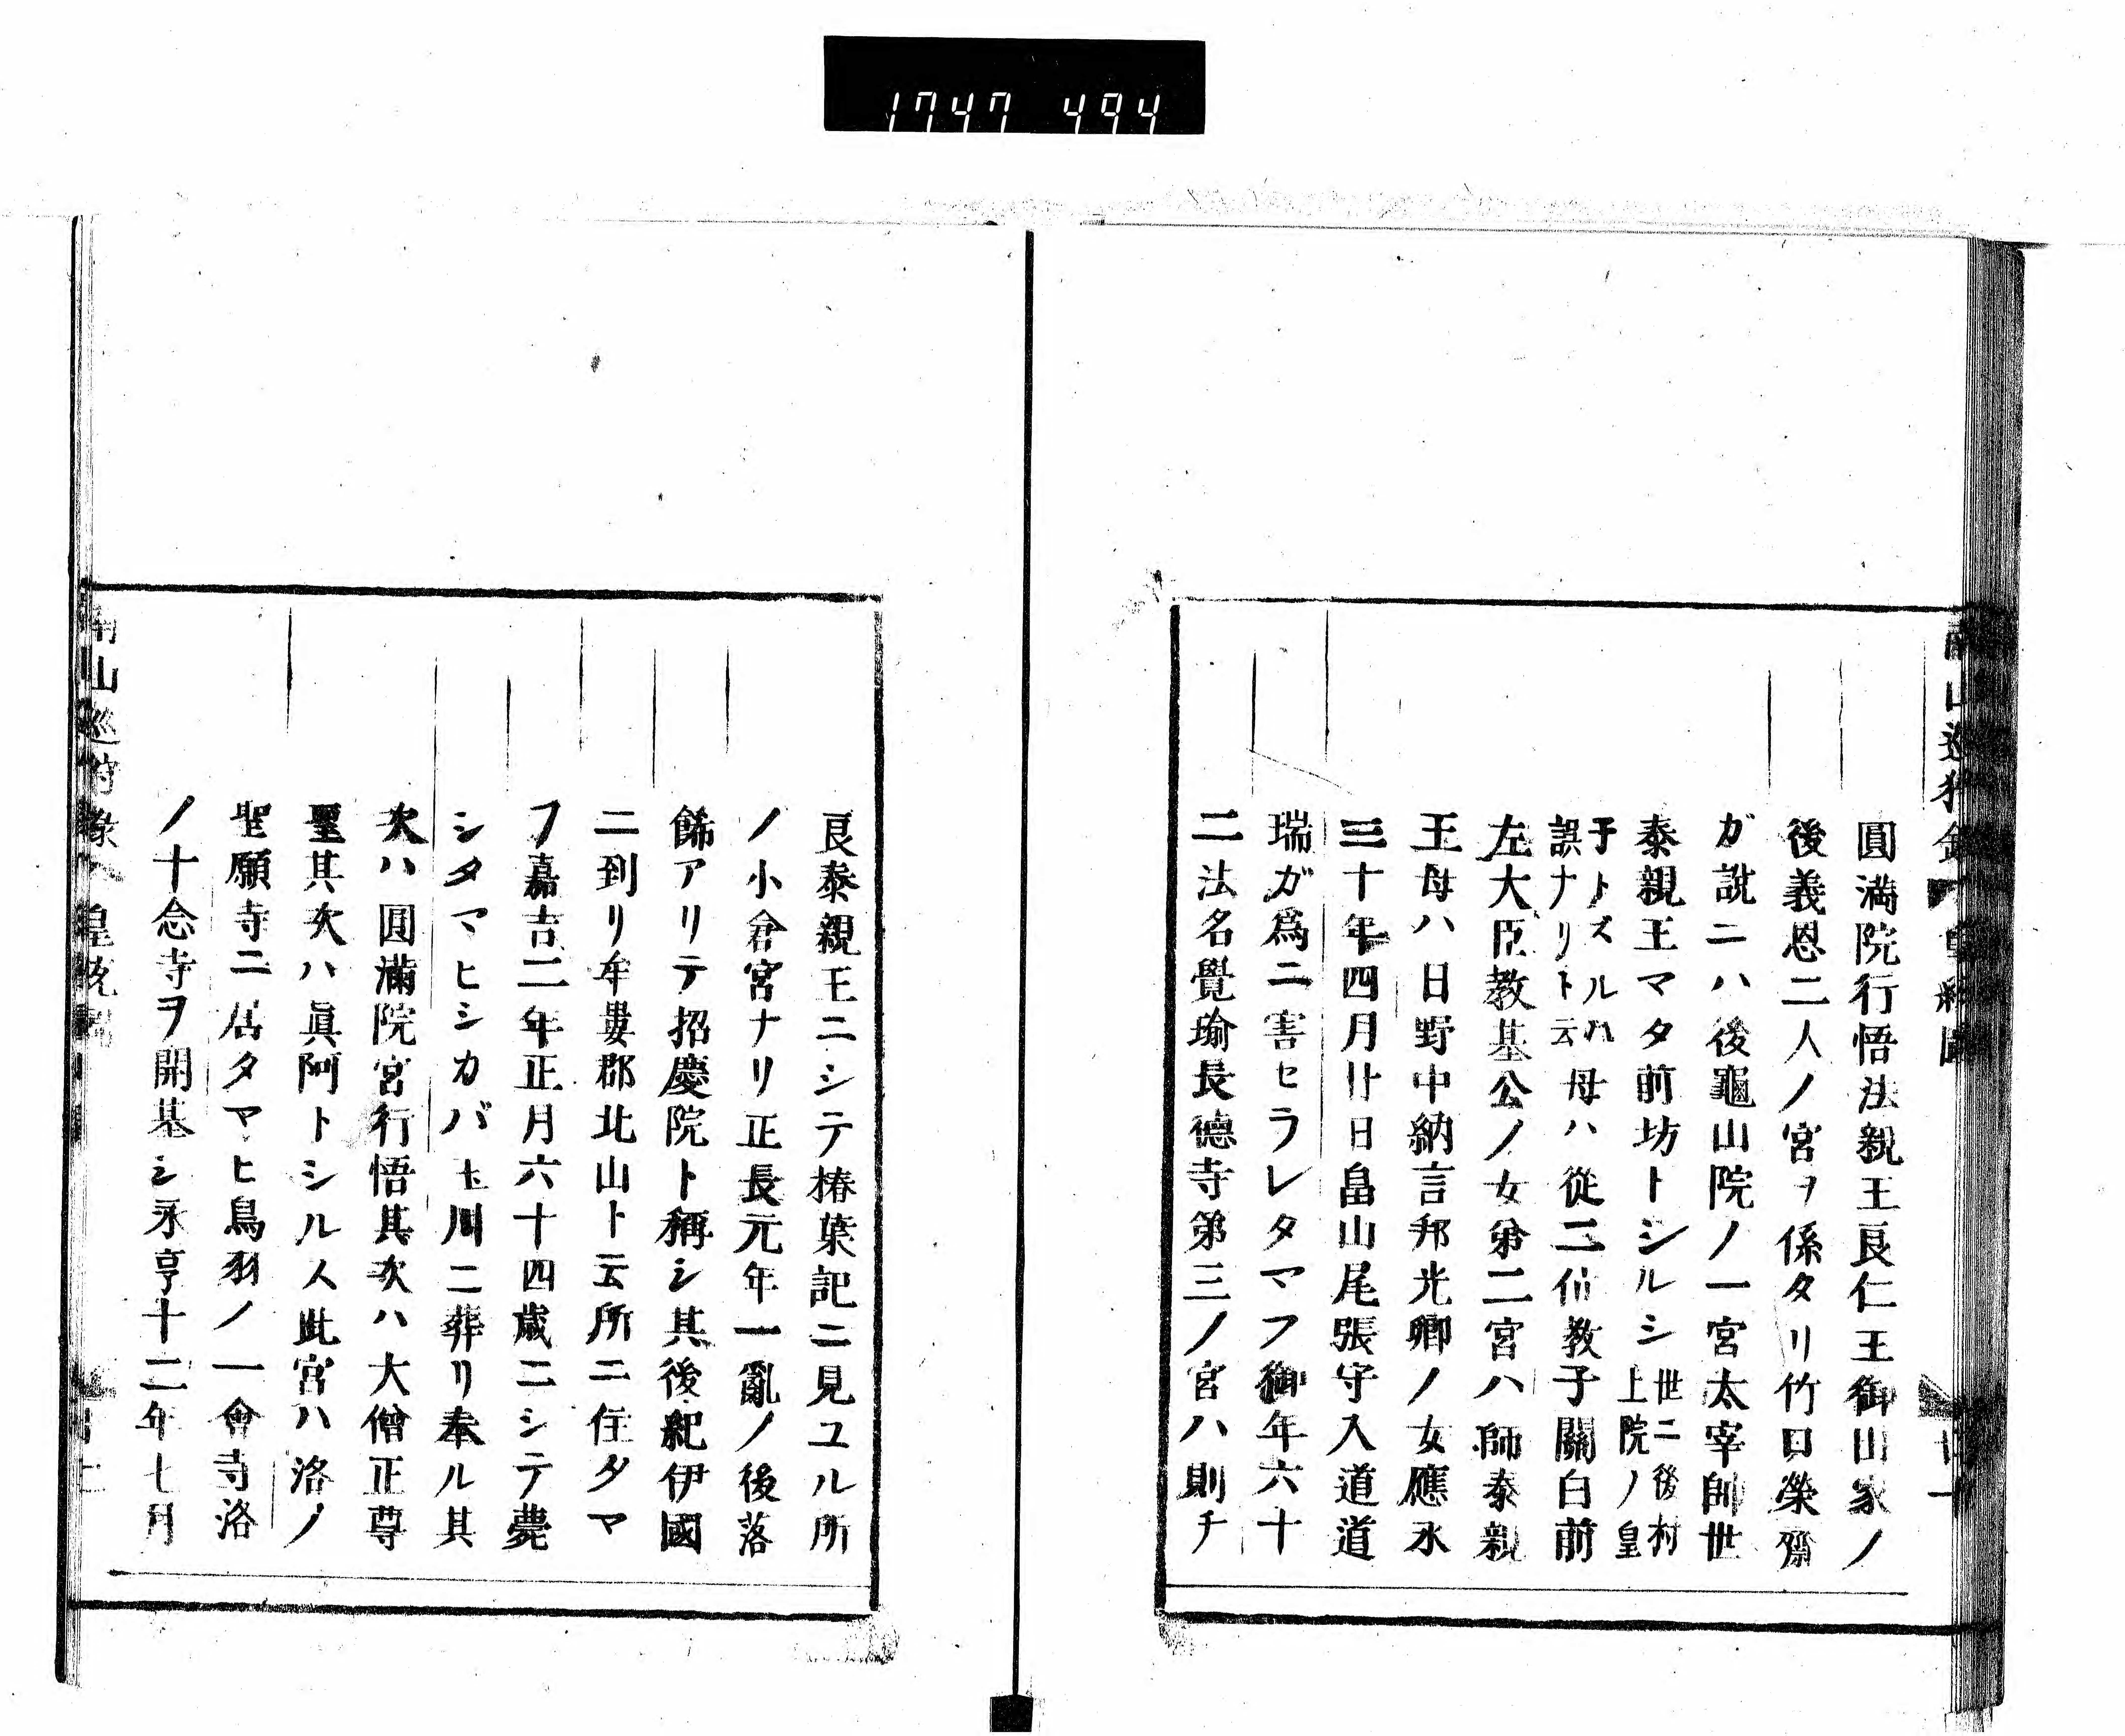 1747 494
南山巡狩録
圓満院行悟法親王良仁王御山家ノ
後義恩二人ノ宮ヲ係タリ竹口榮齋
ガ説ニハ後龜山院ノ一宮太宰帥世
泰親王マタ前坊トシルシ世ニ後村上院ノ皇
子トスルハ誤ナリト云母ハ從二位教子關白前
左大臣教基公ノ女第二宮ハ師泰親
王母ハ日野中納言邦光卿ノ女應永
三十年四月廿日畠山尾張守入道道
瑞ガ爲ニ害セラレタマフ御年六十
二法名覺瑜長德寺第三ノ宮ハ則チ
良泰親王ニシテ椿葉記ニ見ユル所
ノ小倉宮ナリ正長元年一亂ノ後落
餝アリテ招慶院ト稱シ其後紀伊國
ニ到リ牟婁郡北山ト云所ニ住タマ
フ嘉吉二年正月六十四歳ニシテ薨
シタマヒシカバ玉川ニ葬リ奉ル其
次ハ圓滿院宮行悟其次ハ大僧正尊
聖其次ハ眞阿トシル人此宮ハ洛ノ
聖願寺ニ居タマヒ鳥羽ノ一會寺洛
ノ十念寺ヲ開基シ永亨十二年七月
南山巡狩録 皇統